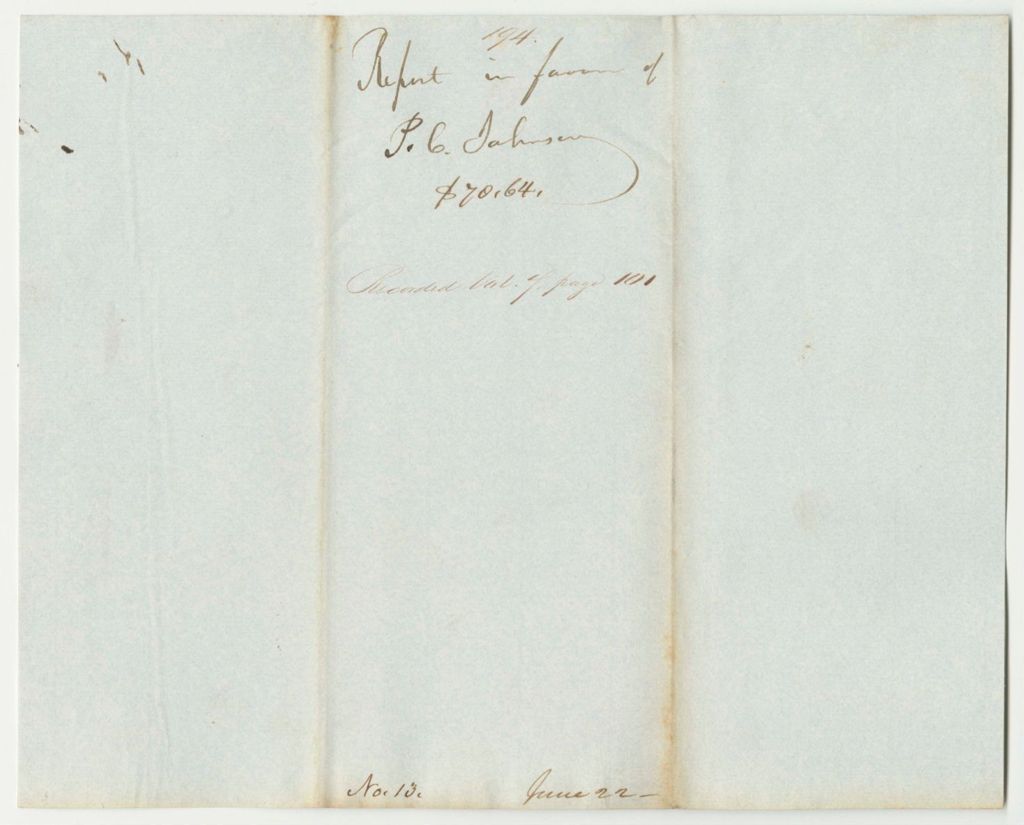 194.
Report in favor of
P. C. Johnson
$70.64.
Recorded Vol. 7 page 101
No. 13. June 22—